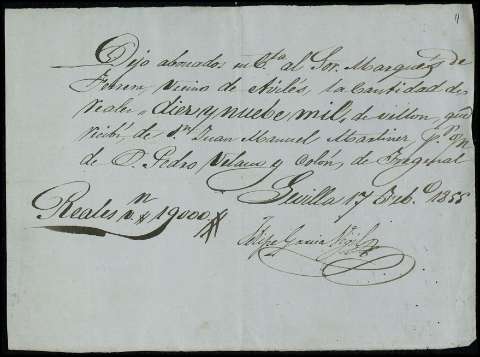 Dejo abonado en Cta al Sor. Marques de
Ferrera, Vecino de Avilés, la Cantidad de
reales diez y nuebe mil, de vellon, que
recibi de Dn Juan Manuel Martinez, p.r
de D. Pedro y Colón, de
Sevilla 17 1855
Reales vn 19000
Felipe Garcia